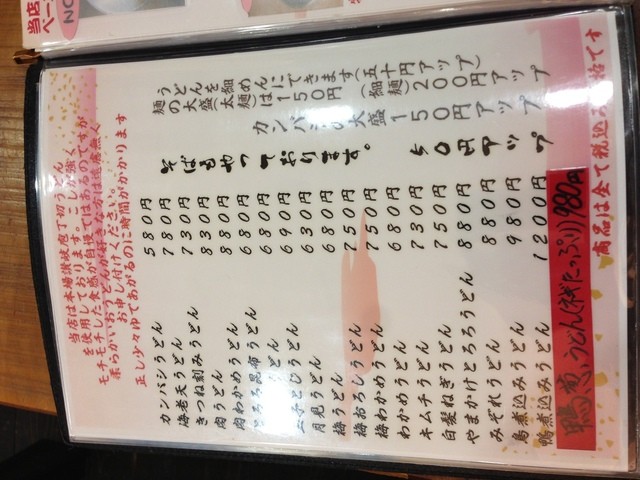 当店
ペー
NO
当店は本場讃岐庖丁切りうどん
を使用しております。こしが強く、
モチモチした食感が自慢ではしるのですが
柔らかいおうどんが好きな方は遠慮無く
お申し付けください。
正し少々ゆであがるのに時間がかかります
カンバシうどん 580円
海老天うどん 780円
きつね刻みうどん 730円
肉うどん 830円
肉わかめうどん 880円
とろろ昆布うどん 680円
うどん 680円
玉子とじうどん 690円
月見うどん 630円
梅うどん 680円
梅おろしうどん 750円
梅わかめうどん 750円
わかめうどん 680円
キムチうどん 730円
白髪ねぎうどん 750円
やまかけとろろうどん 880円
みぞれうどん 880円
鳥煮込みうどん 980円
鴨煮込みうどん 1200円
鴨葱うどん(ねぎたっぷり) 980円
そばもやっております。 50円アップ
うどんを細めんにできます(五十円アップ)
麺の大盛(太麺)は150円 (細麺)200円アップ
カンバシの大盛 150円アップ
商品は全て税込み価格です